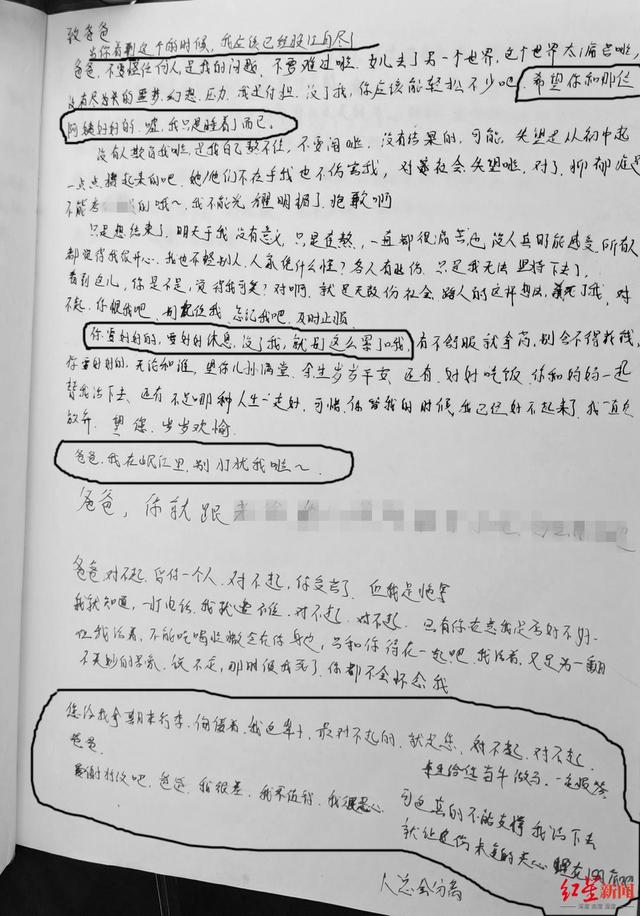 致爸爸
当你看到这个的时候，我应该已经投江自尽了
爸爸，不要怪任何人，是我的问题，不要难过啦。女儿去了另一个世界，这个世界太痛苦啦，
没有尽头的噩梦，幻想，压力，我是负担，没了我，你应该能轻松不少吧，希望你和那位
阿姨好好的，嘘，我只是睡着了而已。
没有人欺负我啦，是我自己熬不住，不要闹啦，没有结果的，可能，失望是从初中起
一点点攒起来的吧，她/他们不在乎我也不伤害我，对社会失望啦，对了，抑郁症是
不能考 的哦～，我不能光耀门楣了，抱歉啊
只是想结束了，明天于我没有意义，只是在熬，一直都很痛苦也没人真的能感受，所有人
都觉得我很开心，我也不怒别人，人家凭什么惟？各人有心伤，只是我无法坚持下去了，
看到这儿，你是不是，觉得我可爱？对啊，就是无数份社会，路人的这样想法，杀死了我，对
不起，你恨我吧，别记住我，忘记我吧，及时止损
你要好好的，要好好休息，没了我，就别这么累了哦，有不舒服就拿药，别舍不得花钱，
你要好好的，无论和谁，望你儿孙满堂，余生岁岁平安，还有，好好吃饭，你和妈妈一起
替我活下去，还有，不是哪种人生一定好，可惜，你爱我的时候，我已经好不起来了，我一直在
放弃，望您，岁岁欢愉
爸爸，我在岷江里，别打扰我啦～
爸爸，你就跟
爸爸对不起，留你一个人，对不起，你受苦了，但我是
我就知道，一打电话，我就 ，对不起，对不起，只有你在意我是否好不好
但我活着，不能吃喝 在你身边，只和你待在一起吧，我活着，又是另一番
不美妙的景象，说不定，那时候我死了，你都不会怀念我
您给我拿期末行李，佝偻着，我也牵卜，最对不起的，就是您，对不起，对不起，
爸爸 来生给您当牛做马，一定报答
感谢 吧，爸爸，我很差，我不值得，我很恶心 可也真的不能支撑我活下去
就让这份 的关心
人总会分离
红星新闻
深度 态度 温度